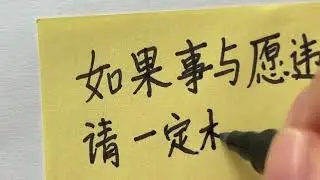 如果事与愿违
请一定